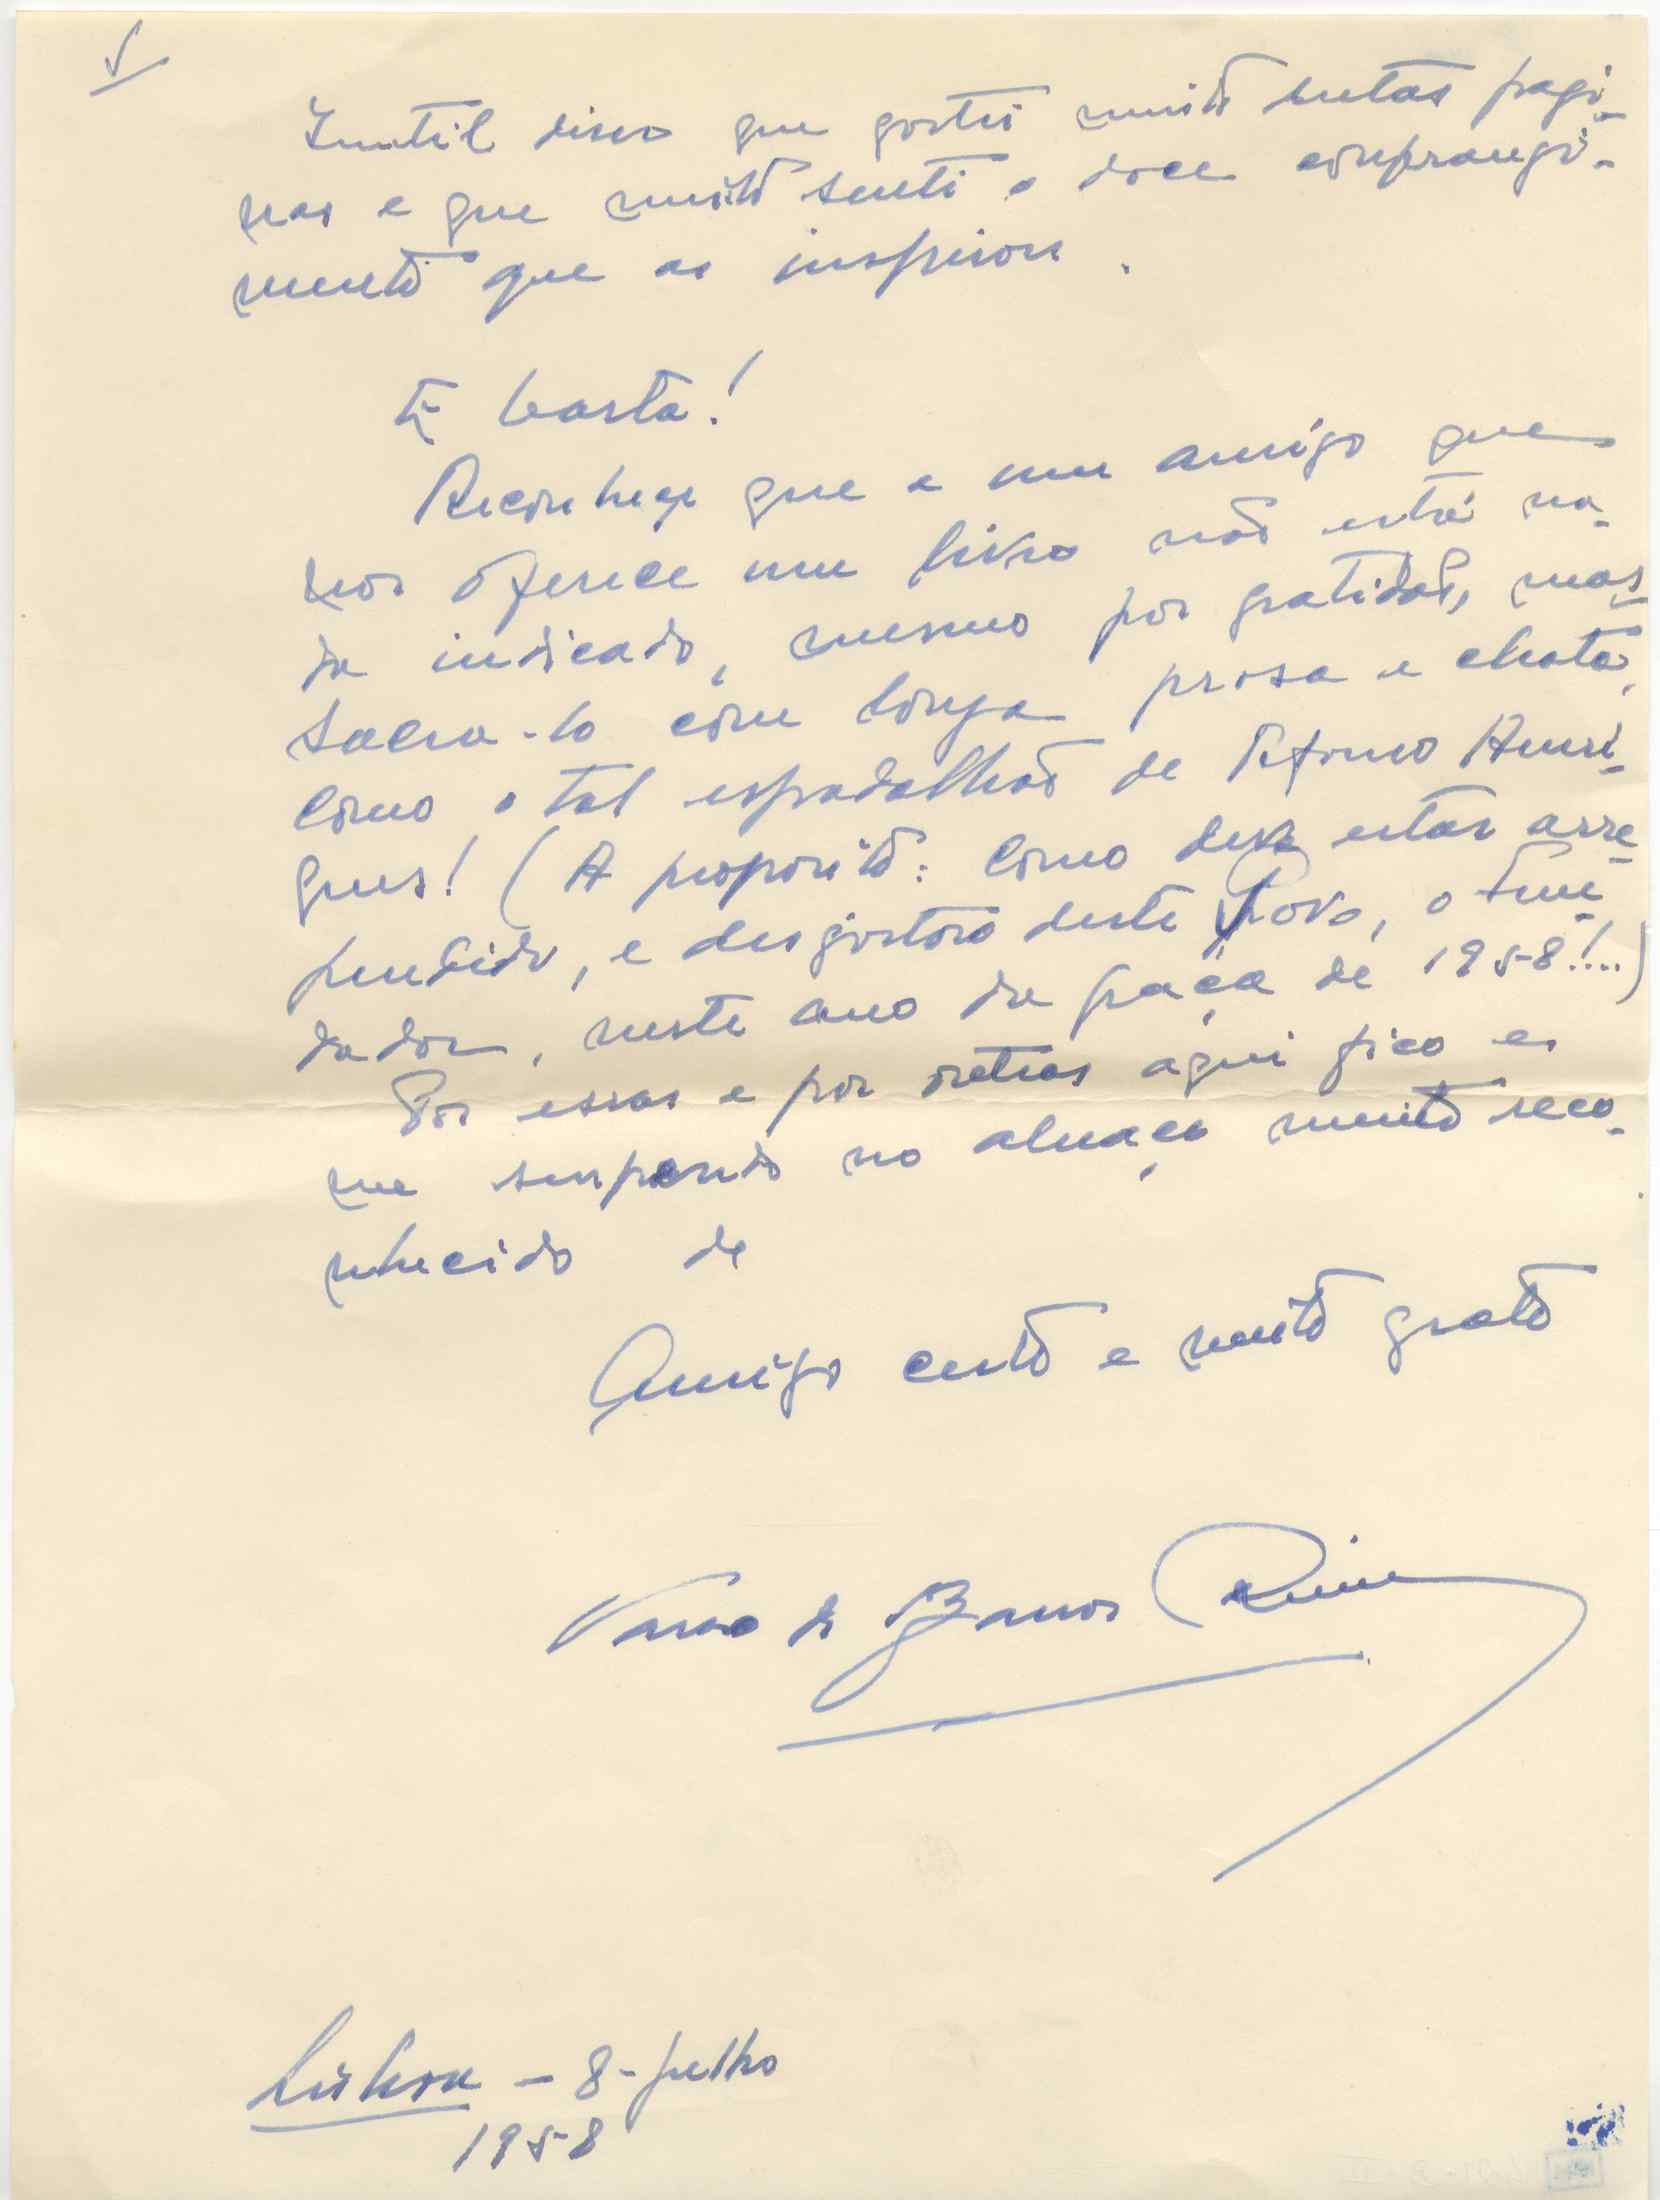 V
Inutil dizer que gostei muito destas pagi-
nas e que muito senti o doce confrangi-
mento que as inspirou.
E basta!
Reconheço que a um amigo que
nos oferece um livro não está na-
da indicado, mesmo por gratidão, mas-
sacra-lo com longa prosa e chata,
como o tal espadalhão de Afonso Henri-
ques! (A proposito: como deve estar arre-
pendido, e desgostoso deste Povo, o Fun-
dador, neste ano da graça de 1958!....)
Por essas e por outras aqui fico e
me suspendo no abraço muito reco-
nhecido de
Amigo certo e muito grato
Vasco de Barros
Lisboa - 8-julho
1958